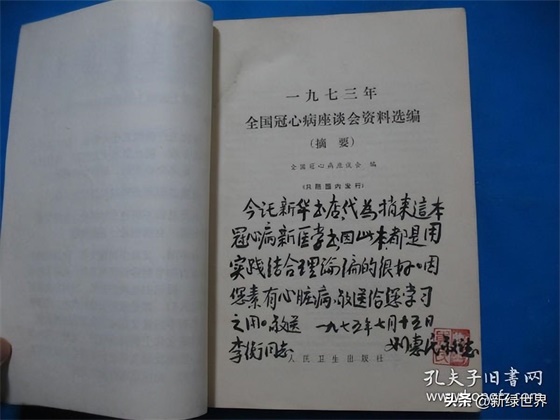 一九七三年
全国冠心病座谈会资料选编
(摘要)
全国冠心病座谈会 编
(只限国内发行)
今讬新华书店代为捎来這本
冠心病新医学书因此本都是用
实践结合理论编的很好。因
您素有心脏病,敬送给您学习
之用。敬送 一九七五年七月十五日
李衡同志 刘惠民敬志
人民卫生出版社
孔夫子旧书网
头条@新绿世界